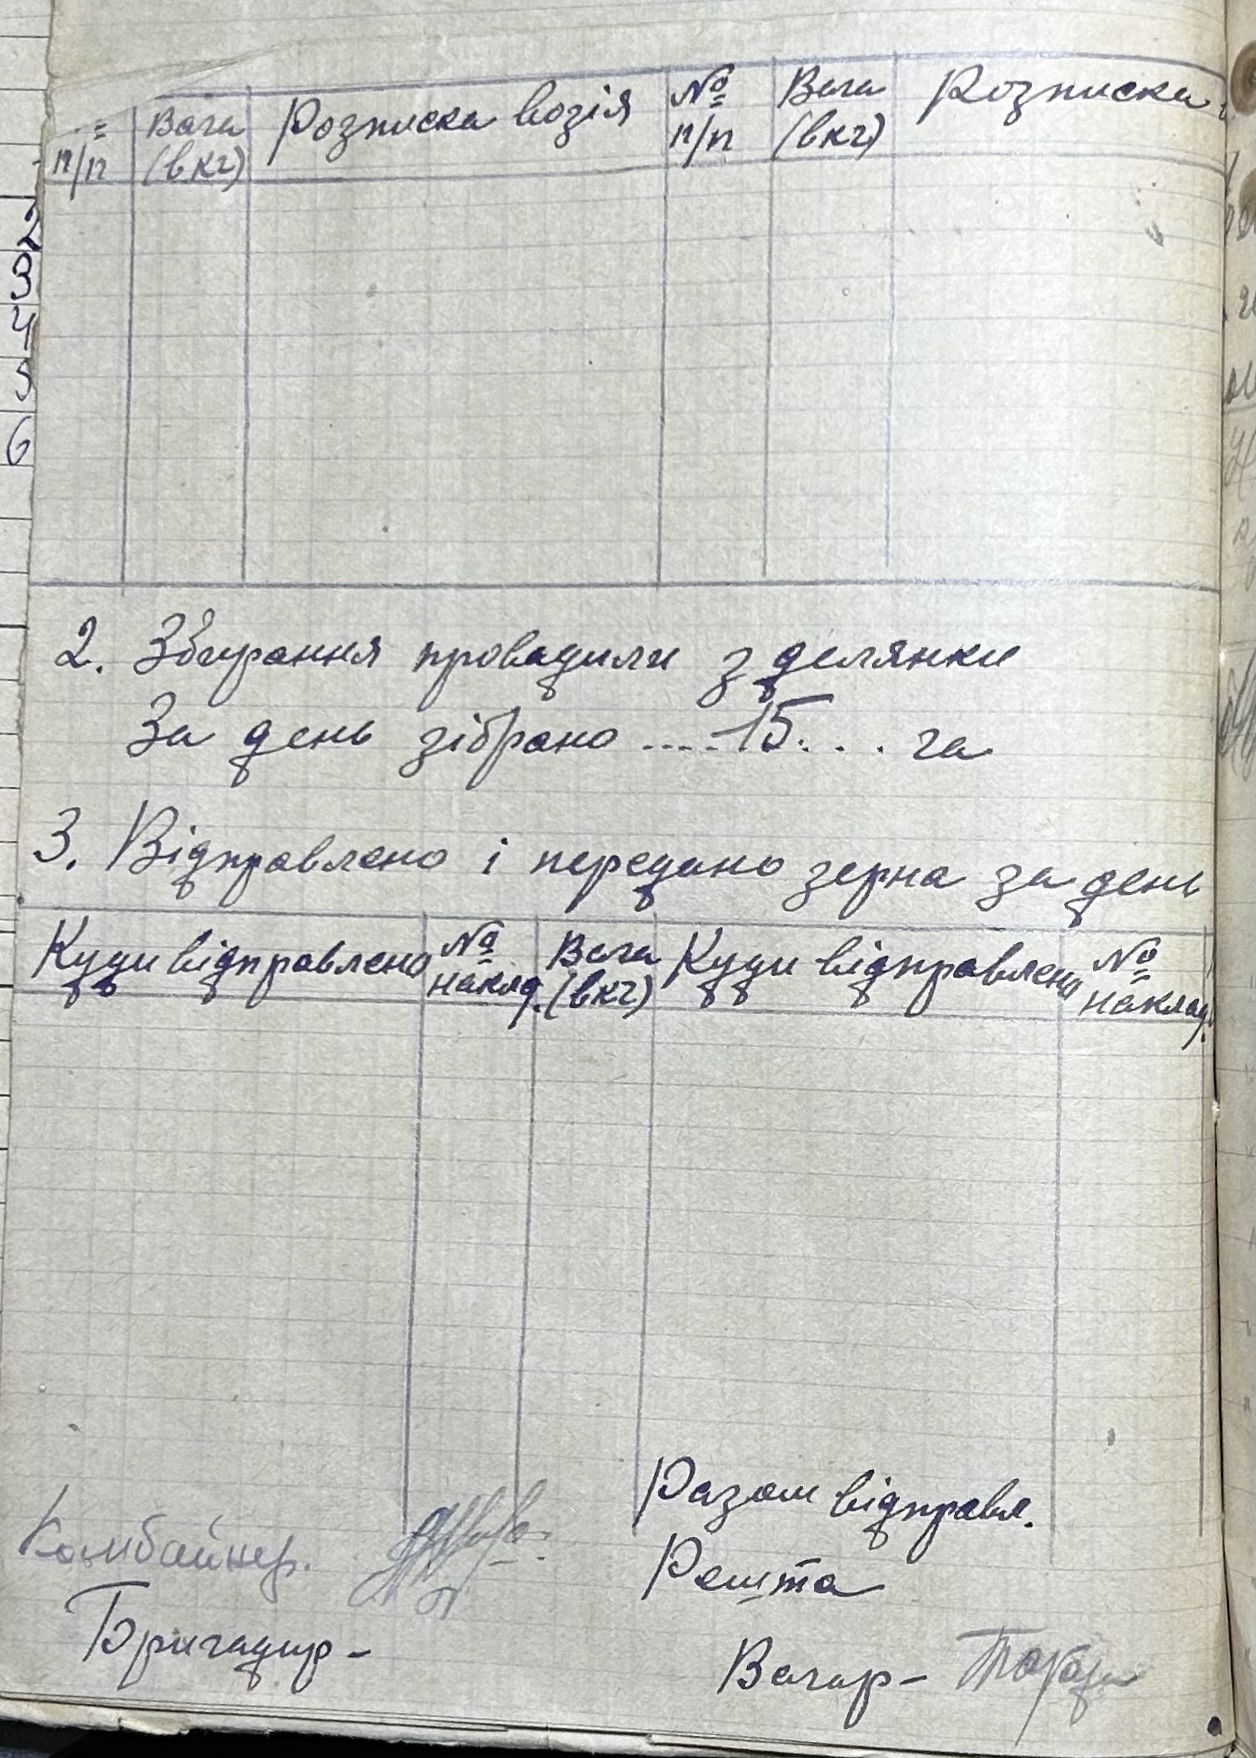 п/п Вага (в кг) Розписка возія № п/п Вага (в кг) Розписка
2
3
4
5
6
2. Збирання провадили з ділянки
За день зібрано ....15... га
3. Відправлено і передано зерна за день
Куди відправлено № наклад. Вага (в кг) Куди відправлено № наклад.
Разом відправл.
Комбайнер.
Решта
Бригадир -
Вагар -